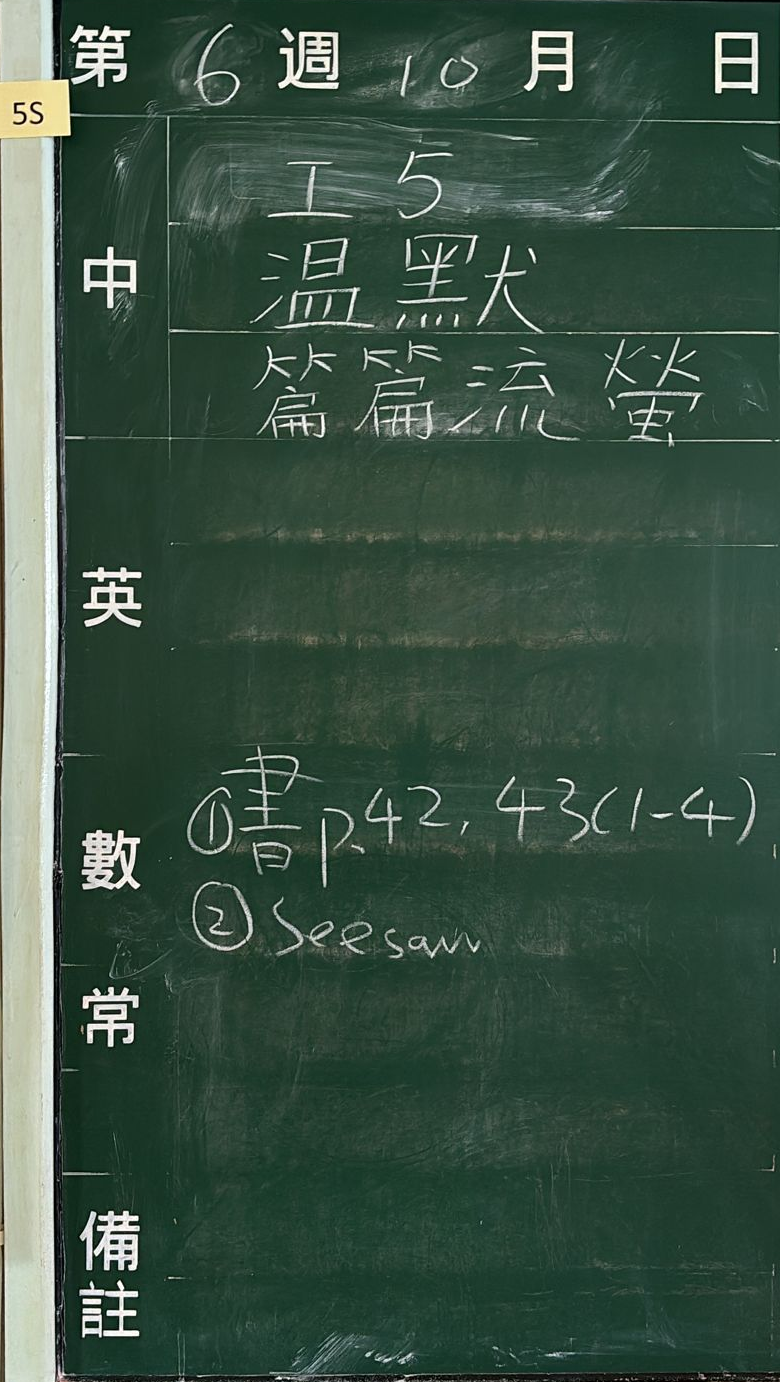 第 6 週 10 月 日
5S
中
工 5
温默
篇篇流螢
英
數
①書P.42, 43(1-4)
②Seesaw
常
備註